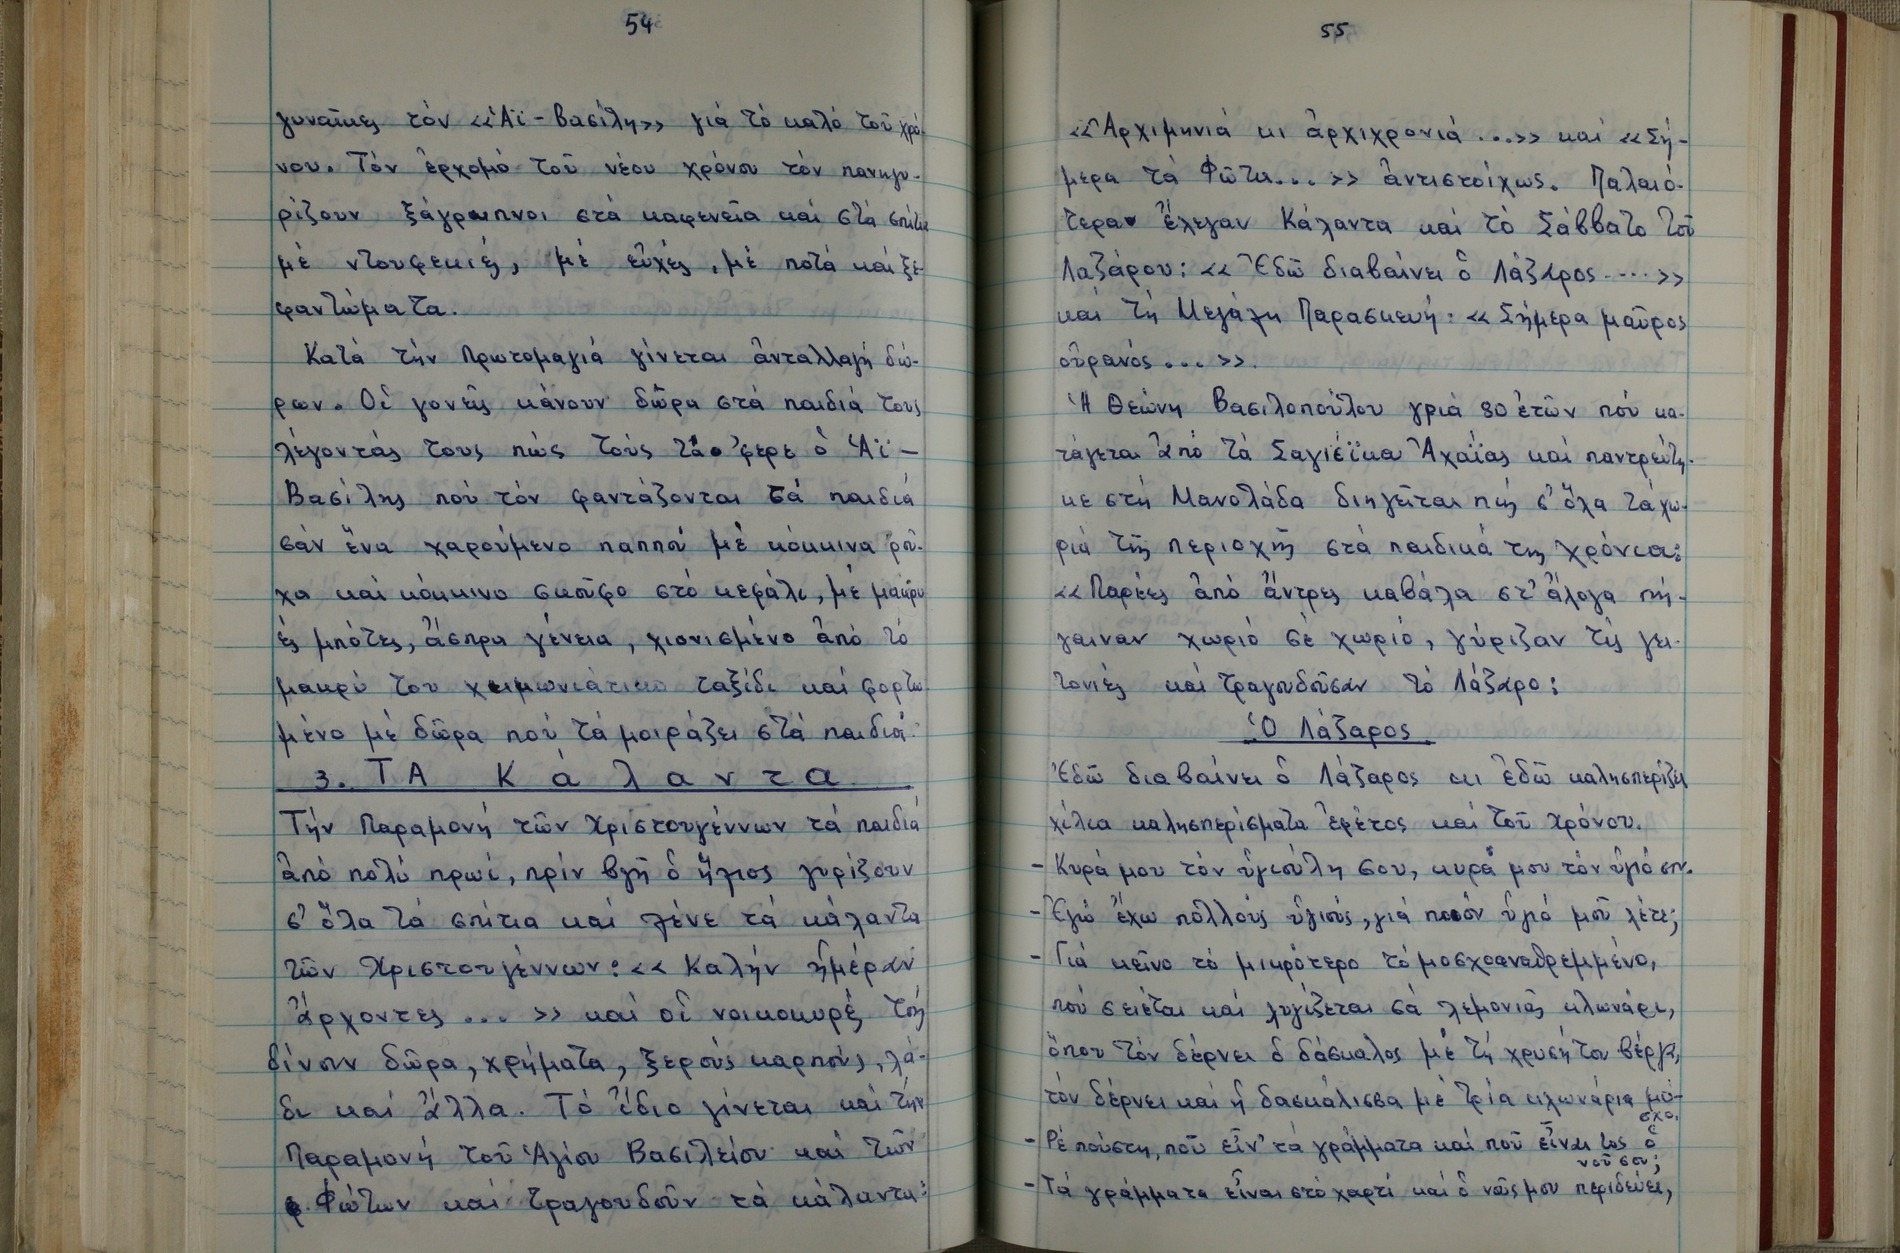 54
γυναῖκες τόν «Ἁϊ-Βασίλη» γιά τό καλό τοῦ χρό-
νου. Τόν ἐρχομό τοῦ νέου χρόνου τόν πανηγυ-
ρίζουν ξάγρυπνοι στά καφενεῖα καί στά σπίτια
μέ ντουφεκιές, μέ εὐχές, μέ ποτά καί ξε-
φαντώματα.
Κατά τήν Πρωτομαγιά γίνεται ἀνταλλαγή δώ-
ρων. Οἱ γονεῖς κάνουν δῶρα στά παιδιά τους
λέγοντάς τους πώς τούς τά 'φερε ὁ Ἁϊ-
Βασίλης πού τόν φαντάζονται τά παιδιά
σάν ἕνα χαρούμενο παππού μέ κόκκινα ροῦ-
χα καί κόκκινο σκοῦφο στό κεφάλι, μέ μακρυ
ές μπότες, ἄσπρα γένεια, χιονισμένο ἀπό τό
μακρύ του χειμωνιάτικο ταξίδι καί φορτω
μένο μέ δῶρα πού τά μοιράζει στά παιδιά.
3. ΤΑ Κάλαντα
Τήν Παραμονή τῶν Χριστουγέννων τά παιδιά
ἀπό πολύ πρωί, πρίν βγῆ ὁ ἥλιος γυρίζουν
σ' ὅλα τά σπίτια καί λένε τά κάλαντα
τῶν Χριστουγέννων: «Καλήν ἡμέραν
ἄρχοντες ... » καί οἱ νοικοκυρές τούς
δίνουν δῶρα, χρήματα, ξερούς καρπούς, λά-
δι καί ἄλλα. Τό ἴδιο γίνεται καί τήν
Παραμονή τοῦ Ἁγίου Βασιλείου καί τῶν
Φώτων καί τραγουδοῦν τά κάλαντα:
55
«Ἀρχιμηνιά κι ἀρχιχρονιά ...» καί «Σή-
μερα τά Φῶτα... » ἀντιστοίχως. Παλαιό-
τερα ἔλεγαν Κάλαντα καί τό Σάββατο τοῦ
Λαζάρου: «Ἐδῶ διαβαίνει ὁ Λάζαρος .... »
καί τή Μεγάλη Παρασκευή: «Σήμερα μαῦρος
οὐρανός ... ».
Ἡ Θεώνη Βασιλοπούλου γριά 80 ἐτῶν πού κα-
τάγεται ἀπό τά Σαγιέϊκα Ἀχαΐας καί παντρεύτη-
κε στή Μανολάδα διηγεῖται πώς σ' ὅλα τά χω-
ριά τῆς περιοχῆς στά παιδικά της χρόνια:
«Παρέες ἀπό ἄντρες καβάλα στ' ἄλογα πή-
γαιναν χωριό σέ χωριό, γύριζαν τίς γει-
τονιές καί τραγουδοῦσαν τό Λάζαρο:
Ὁ Λάζαρος
Ἐδῶ διαβαίνει ὁ Λάζαρος κι ἐδῶ καλησπερίζει
χίλια καλησπερίσματα ἐφέτος καί τοῦ χρόνου.
- Κυρά μου τόν ὑγιούλη σου, κυρά μου τόν ὑγιό σου.
- Ἐγώ ἔχω πολλούς ὑγιούς, γιά ποιόν ὑγιό μοῦ λέτε;
- Γιά κεῖνο τό μικρότερο τό μοσχοαναθρεμμένο,
πού σειέται καί λυγίζεται σά λεμονιᾶς κλωνάρι,
ὅπου τόν δέρνει ὁ δάσκαλος μέ τή χρυσή του βέργα,
τόν δέρνει καί ἡ δασκάλισσα μέ τρία κλωνάρια μό-
σχο.
- Ρέ πούστη, ποῦ εἶν' τά γράμματα καί ποῦ εἶναι τος ὁ
νοῦ σου;
- Τά γράμματα εἶναι στό χαρτί καί ὁ νοῦς μου περιδεύει,